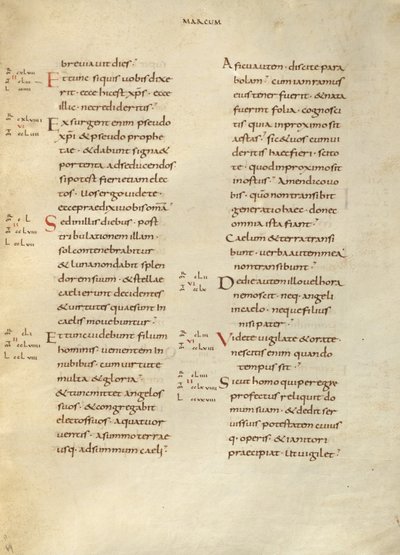 MARCUM
breviavit dies.
Et tunc si quis vobis dixe
rit · ecce hic est xp̄s · ecce
illic · ne credideritis.
Exsurgent enim pseudo
xp̄i & pseudo prophe
tae · & dabunt signa &
portenta ad seducendos
si potest fieri etiam elec
tos · Vos ergo videte ·
ecce praedixi vobis om̄a
Sed in illis diebus · post
tribulationem illam ·
sol contenebrabitur
& luna non dabit splen
dorem suum · & stellae
caeli erunt decidentes
& virtutes quae sunt in
caelis movebuntur ·
Et tunc videbunt filium
hominis · venientem in
nubibus · cum virtute
multa & gloria ·
& tunc mittet angelos
suos · & congregabit
electos suos · a quatuor
ventis · a summo terrae
usq· ad summum caeli ·
A ficu autem · discite para
bolam · cum iam ramus
eius tener fuerit · & nata
fuerint folia · cognosci
tis quia in proximo sit
aestas · sic & vos cum vi
deritis haec fieri · scito
te · quod in proximo sit
in ostiis · Amen dico vo
bis · qm̄ non transibit
generatio haec · donec
omnia ista fiant ·
Caelum & terra transi
bunt · verba autem mea
non transibunt ·
De die autem illo vel hora
nemo scit · neq· angeli
in caelo · neque filius
nisi pater ·
Videte vigilate & orate ·
nescitis enim quando
tempus sit ·
Sicut homo qui peregre
profectus reliquit do
mum suam · & dedit ser
vis suis potestatem cuius
q· operis · & ianitori
praecipiat · ut vigilet ·